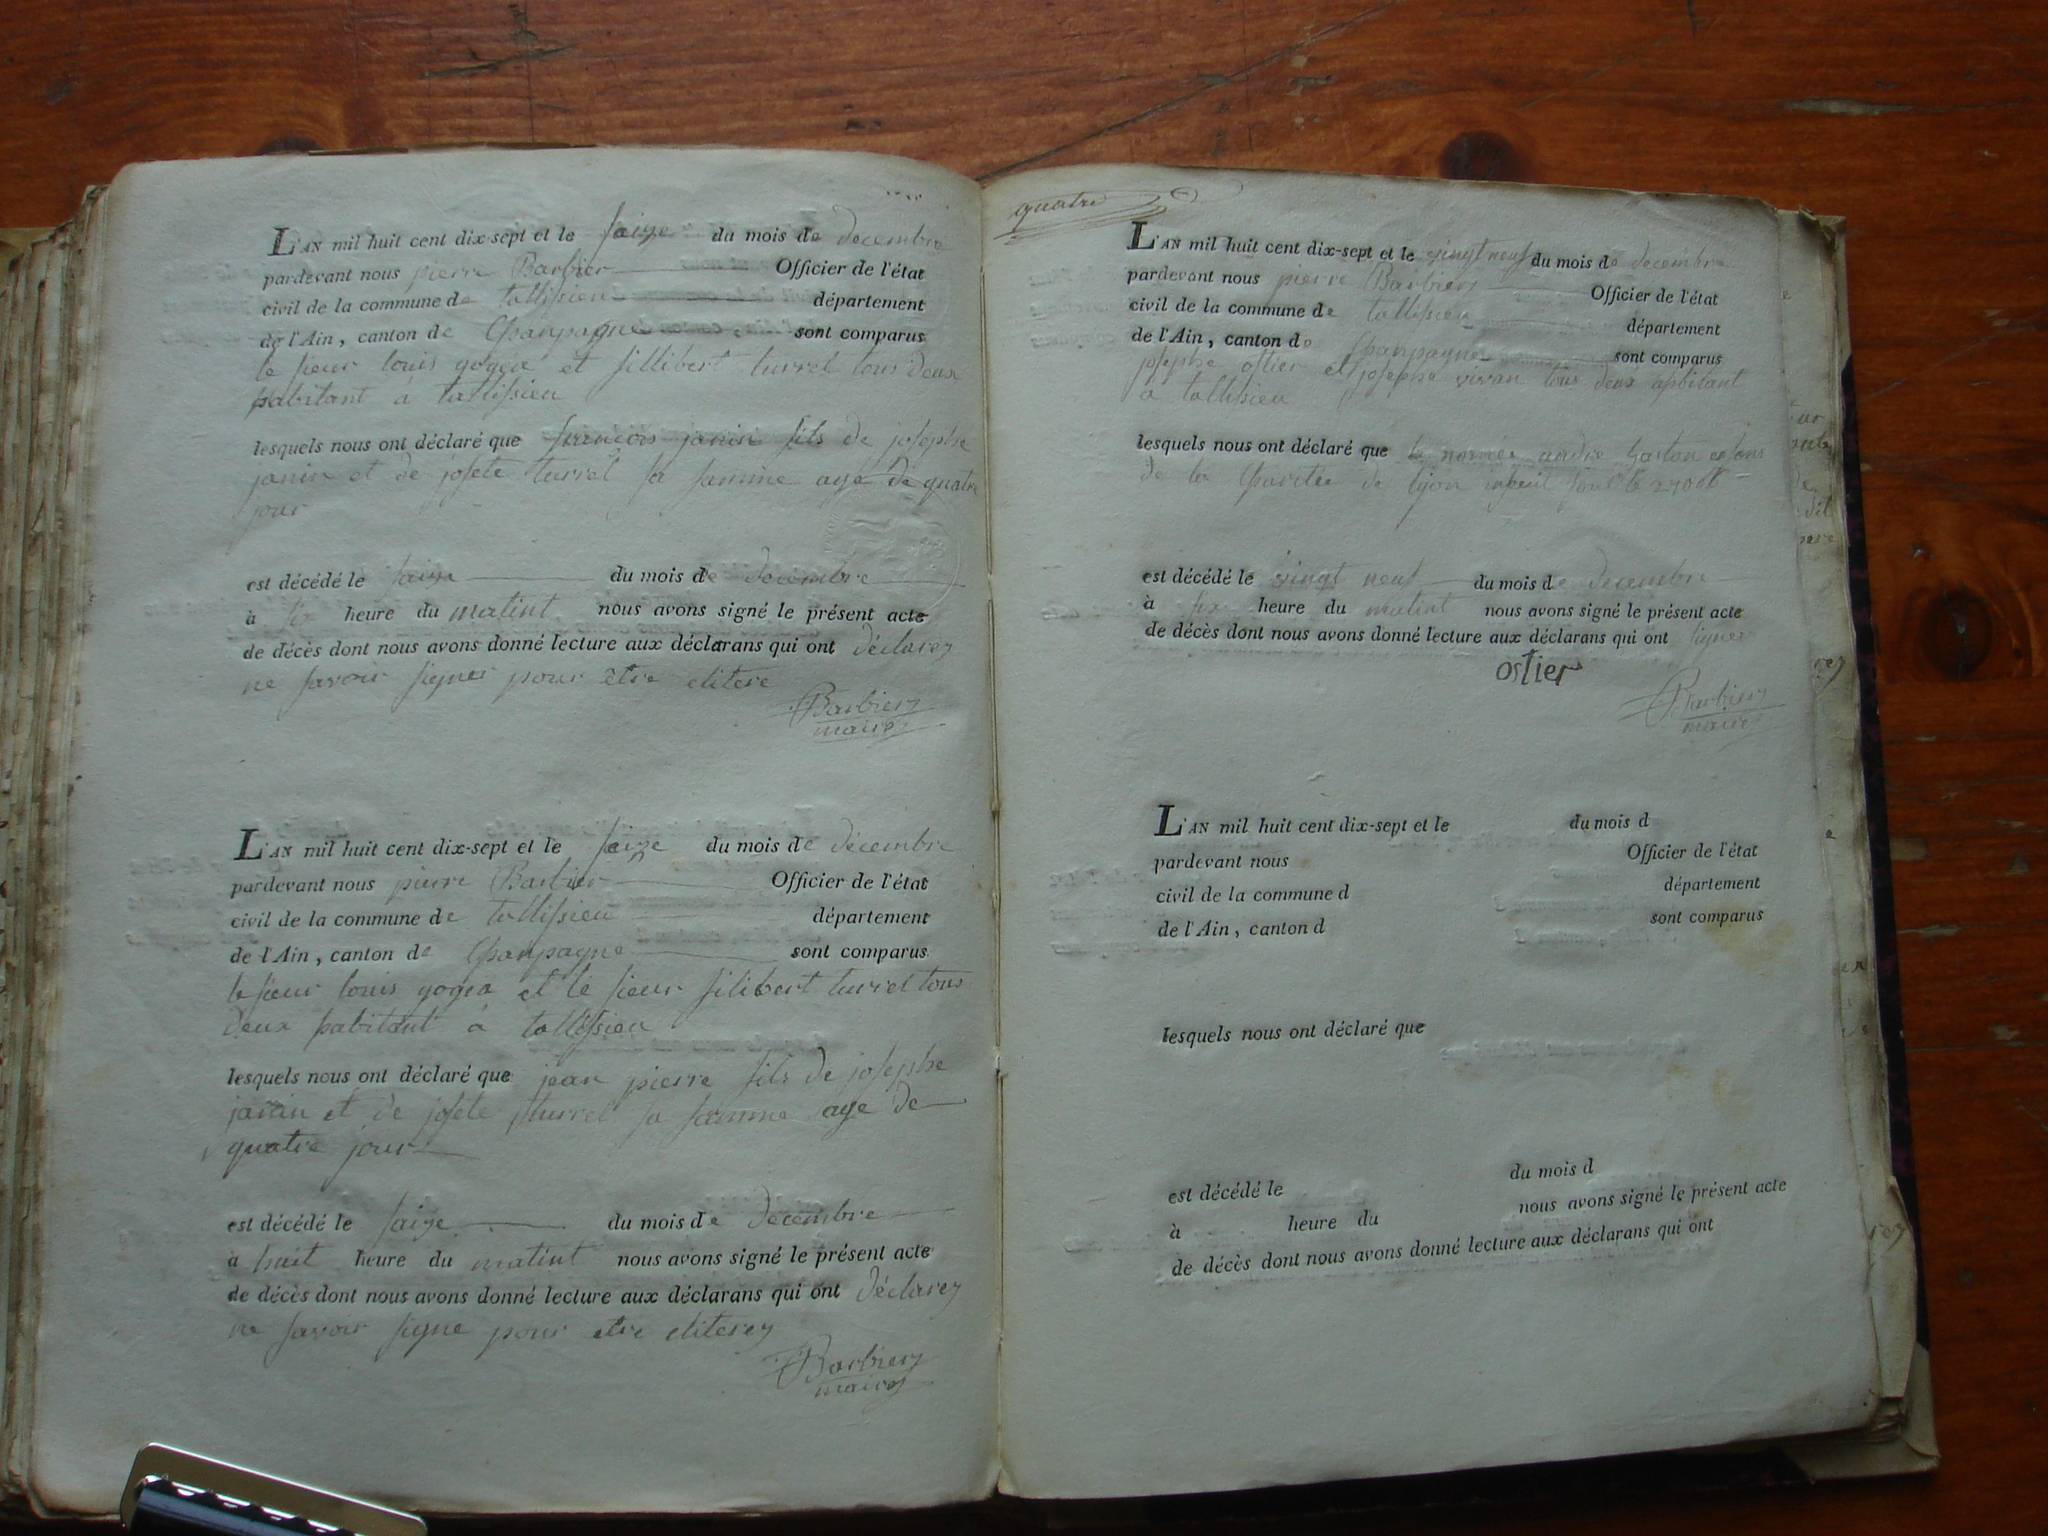 L'AN mil huit cent dix-sept et le saize du mois de decembre
pardevant nous pierre Barbier Officier de l'état
civil de la commune de tallissieu département
de l'Ain, canton de Chanpagne sont comparus
le sieur louis gogea et fillibert turrel tous deux
habitant à tallissieu
lesquels nous ont déclaré que francois janin fils de josephe
janin et de josete turrel sa famme age de quatre
jour
est décédé le saize du mois de decembre
à six heure du matint nous avons signé le présent acte
de décès dont nous avons donné lecture aux déclarans qui ont déclarez
ne savoir signer pour être elitere
Barbier
maire
L'AN mil huit cent dix-sept et le saize du mois de décembre
pardevant nous pierre Barbier Officier de l'état
civil de la commune de tallissieu département
de l'Ain, canton de Chanpagne sont comparus
le sieur louis gogea et le sieur filibert turrel tous
deux habitant à tallissieu
lesquels nous ont déclaré que jean pierre fils de josephe
janin et de josete turrel sa famme age de
quatre jour
est décédé le saize du mois de decembre
à huit heure du matint nous avons signé le présent acte
de décès dont nous avons donné lecture aux déclarans qui ont déclarez
ne savoir signe pour etre eliterez
Barbier
maire
quatre
L'AN mil huit cent dix-sept et le vingt neuf du mois de decembre
pardevant nous pierre Barbier Officier de l'état
civil de la commune de tallissieu département
de l'Ain, canton de Chanpagne sont comparus
josephe ostier et josephe vivan tous deux abitant
a tallissieu
lesquels nous ont déclaré que le nomée andre
de la Charitée de lyon
est décédé le vingt neuf du mois de decembre
à six heure du matint nous avons signé le présent acte
de décès dont nous avons donné lecture aux déclarans qui ont signer
ostier
Barbier
maire
L'AN mil huit cent dix-sept et le du mois d
pardevant nous Officier de l'état
civil de la commune d département
de l'Ain, canton d sont comparus
lesquels nous ont déclaré que
est décédé le du mois d
à heure du nous avons signé le présent acte
de décès dont nous avons donné lecture aux déclarans qui ont